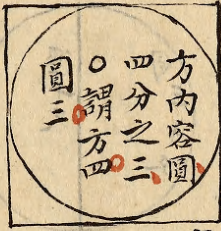 方內容圓
四分之三
○謂方四
圓三